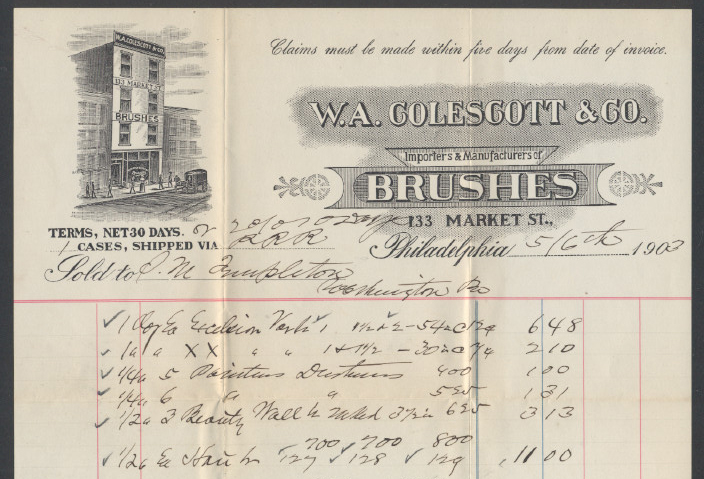 Claims must be made within five days from date of invoice.
W.A. COLESCOTT & CO.
133 MARKET ST.
BRUSHES
W.A. COLESCOTT & CO.
Importers & Manufacturers of
BRUSHES
133 MARKET ST.,
TERMS, NET 30 DAYS. or 2% 10 Days
1 CASES, SHIPPED VIA P.R.R.
Philadelphia 5/6th 1903
Sold to S. M. Templeton
Washington Pa
✓ 1 Doz Ea Excelsior 1 1 1/2 + 2 - 6 48
✓ 1 " " XX " " 1 + 1 1/2 - 2 10
✓ 1/4 " 5 Painters Dusters 400 1 00
✓ 1/4 " 6 " " 525 1 31
✓ 1/2 " 3 Beauty Wall 3 1/2 in 625 3 13
700 700 800
✓ 1/2 " Ea 127 ✓ 128 ✓ 129 11 00